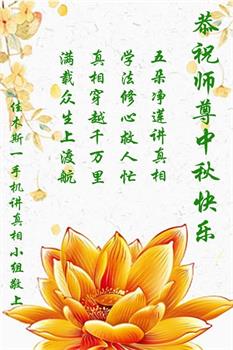 恭祝师尊中秋快乐
五朵净莲讲真相
学法修心救人忙
真相穿越千万里
满载众生上渡航
佳木斯一手机讲真相小组敬上